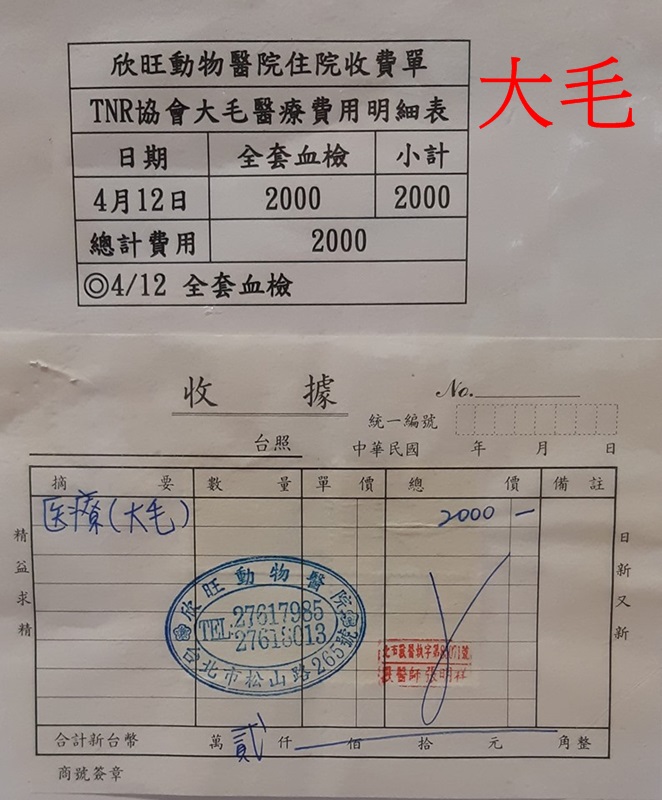 欣旺動物醫院住院收費單
大毛
TNR協會大毛醫療費用明細表
日期 全套血檢 小計
4月12日 2000 2000
總計費用 2000
◎4/12 全套血檢
收據
No.
統一編號
台照 中華民國 年 月 日
摘要 數量 單價 總價 備註
医療(大毛) 2000 一
精益求精
日新又新
欣旺動物醫院
TEL:27617985
27618013
台北市松山路265號
獸醫師張明祥
合計新台幣 萬 貳仟 佰 拾 元 角整
商號簽章